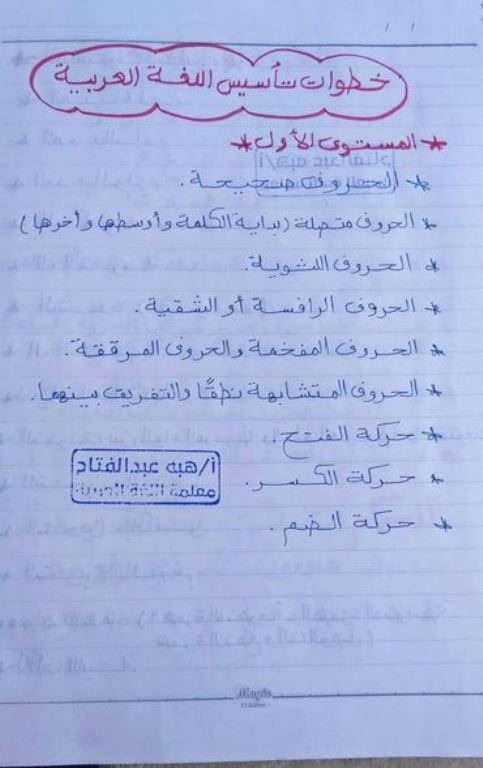 خطوات تأسيس اللغة العربية
* المستوى الأول *
* الحروف صحيحة.
* الحروف متصلة (بداية الكلمة وأوسطها وأخرها)
* الحروف اللثوية.
* الحروف الرافسة أو الشقية.
* الحروف المفخمة والحروف المرققة.
* الحروف المتشابهة نطقًا والتفريق بينهما.
* حركة الفتح.
أ/هبه عبدالفتاح
معلمة اللغة العربية
* حركة الكسر.
* حركة الضم.